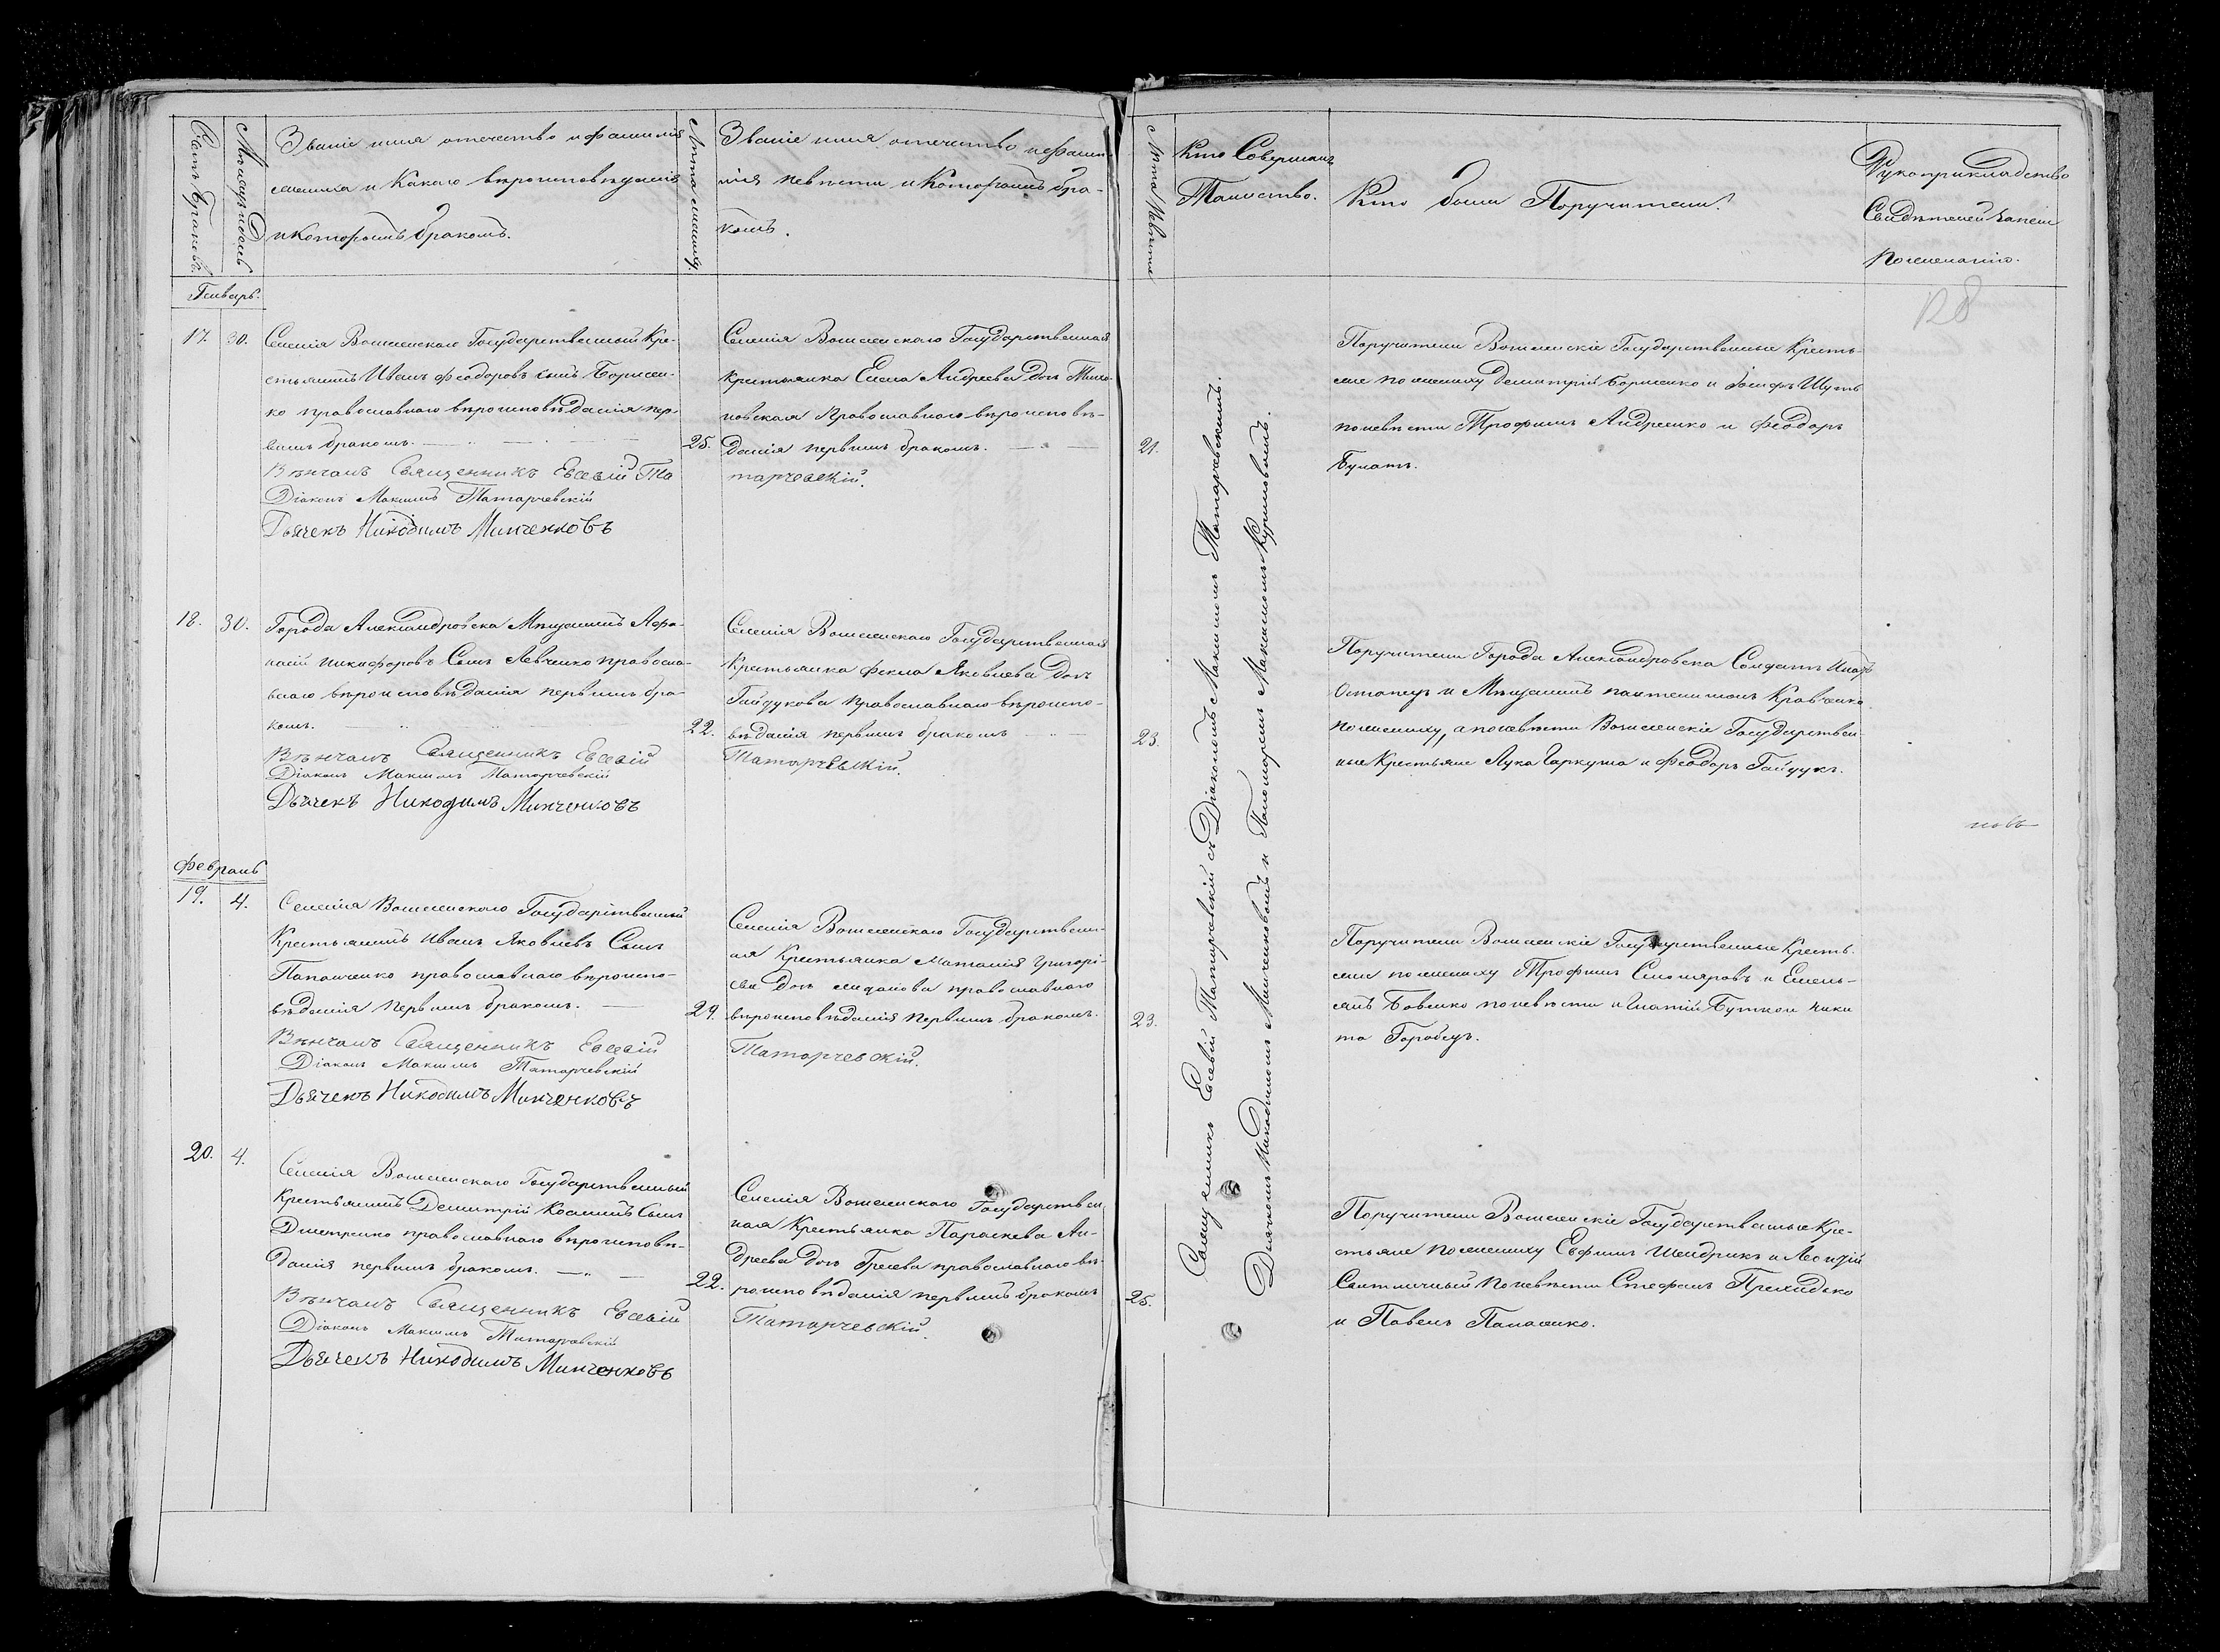 Счетъ браковъ.
Мѣсяцъ и День
Званіе имя отечество и фамилія
жениха и какого вѣроисповѣданія
и которымъ бракомъ.
Лѣта жениха.
Званіе имя отечество и фами-
лія невѣсты и которымъ бра-
комъ.
Лѣта Невѣсты
Кто Совершалъ
Таинство.
Кто были Поручители.
Рукоприкладство
Свидѣтелей записи
по желанію.
128
Генварь.
17. 30.
Селенія Вошненскаго Государственный Кре-
стьянинъ Иванъ Феодоровъ сынъ Борисен-
ко православнаго вѣроисповѣданія пер-
вымъ бракомъ.
25.
Вѣнчалъ Священникъ Евсевій Та
Діаконъ Максимъ Татарчевскій
Дьячекъ Никодимъ Минченковъ
Селенія Вошненскаго Государственная
крестьянка Елена Андреева дочь
Православнаго вѣроисповѣ-
данія первымъ бракомъ.
тарчевскій.
21.
Поручители Вошненскіе Государственные Кресть-
яне по жениху Димитрій Борисенко и Іосифъ Шуть
по невѣсти Трофимъ Андреенко и Феодоръ
Булатъ.
18. 30.
Города Александровска Мѣщанинъ Афа-
насій Никифоровъ Сынъ Левченко православ-
наго вѣроисповѣданія первымъ бра-
комъ.
22.
Вѣнчалъ Священникъ Евсевій
Діаконъ Максимъ Татарчевскій
Дьячекъ Никодимъ Минченковъ
Селенія Вошненскаго Государственная
Крестьянка Фекла Яковлева Дочь
Гайдукова православнаго вѣроиспо-
вѣданія первымъ бракомъ
Татарчевскій.
23.
Поручители Города Александровска Солдатъ
Остапецъ и Мѣщанинъ Пантелимонъ Кравченко
по жениху, а по невѣсти Вошненскіе Государствен-
ные Крестьяне Лука Гаркуша и Феодоръ Гайдукъ.
Февраль
19. 4.
Селенія Вошненскаго Государственный
Крестьянинъ Иванъ Яковлевъ Сынъ
Папаненко православнаго вѣроиспо-
вѣданія первымъ бракомъ.
29.
Вѣнчалъ Священникъ Евсевій
Діаконъ Максимъ Татарчевскій
Дьячекъ Никодимъ Минченковъ
Селенія Вошненскаго Государствен-
ая Крестьянка Наталія Григорі-
ева Дочь православнаго
вѣроисповѣданія первымъ бракомъ.
Татарчевскій.
23.
Поручители Вошненскіе Государственные Кресть-
яне по жениху Трофимъ Столяровъ и Емель-
янъ Бовенко по невѣсти Игнатій Бутко и Ники
та Горобецъ.
20. 4.
Селенія Вошненскаго Государственный
Крестьянинъ Димитрій Косминъ Сынъ
Дмитренко православнаго вѣроисповѣ-
данія первымъ бракомъ.
22.
Вѣнчалъ Священникъ Евсевій
Діаконъ Максимъ Татарчевскій
Дьячекъ Никодимъ Минченковъ
Селенія Вошненскаго Государствен
ная Крестьянка Параскева Ан-
дреева Дочь Греева православнаго вѣ-
роисповѣданія первымъ бракомъ
Татарчевскій.
25.
Поручители Вошненскіе Государственные Кре-
стьяне по жениху Евфимъ Шендрикъ и Леонтій
Свитличный по невѣсти Стефанъ
и Павелъ Папаненко.
Священникъ Евсевій Татарчевскій съ Діакономъ Максимомъ Татарчевскимъ.
Дьячкомъ Никодимомъ Минченковымъ и Пономаремъ Максимомъ
новъ